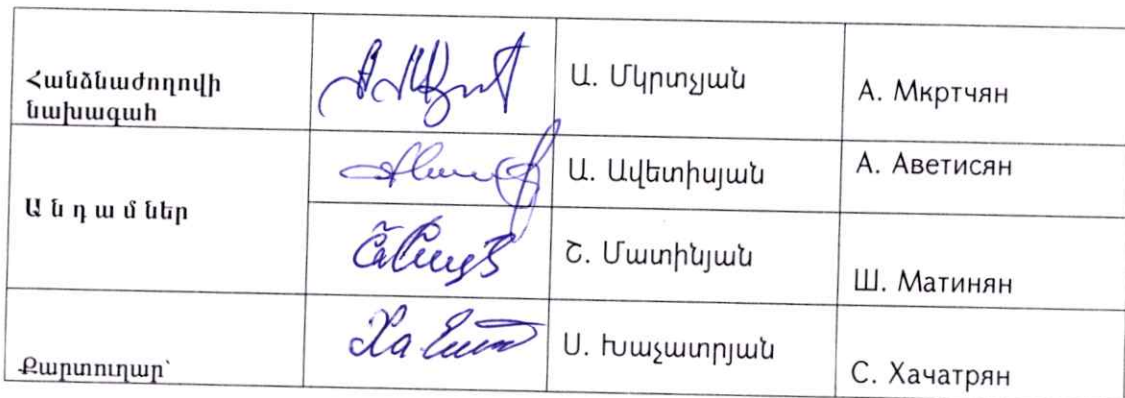 Հանձնաժողովի
նախագահ
Ա. Մկրտչյան
А. Мкртчян
Ա ն դ ա մ ներ
Ա. Ավետիսյան
А. Аветисян
Շ. Մատինյան
Ш. Матинян
Քարտուղար՝
Ս. Խաչատրյան
С. Хачатрян